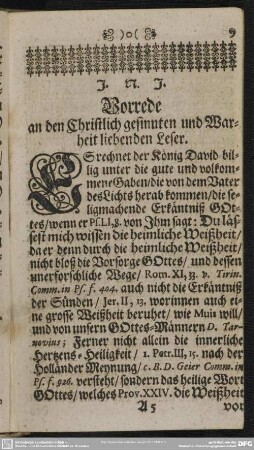 )o( 9
J. N. J.
Vorrede
an den Christlich gesinnten und War-
heit liebenden Leser.
ES rechnet der König David bil-
lig unter die gute und volkom-
mene Gaben/die von dem Vater
des Lichts herab kommen/die se-
ligmachende Erkäntniß GOt-
tes/wenn er Ps. LI, 8. von Ihm sagt: Du läs-
sest mich wissen die heimliche Weißheit/
da er denn durch die heimliche Weißheit/
nicht bloß die Vorsorge GOttes/ und dessen
unerforschliche Wege/ Rom. XI, 33. v. Tirin.
Comm. in Ps. f. 404. auch nicht die Erkäntniß
der Sünden/ Jer. II, 13. worinnen auch ei-
ne grosse Weißheit beruhet/ wie Muis will/
und von unsern GOttes-Männern D. Tar-
novius; Ferner nicht allein die innerliche
Hertzens-Heiligkeit / 1. Patr. III, 15. nach der
Holländer Meynung / c. B. D. Geier Comm. in
Ps. f. 926. versteht/ sondern das heilige Wort
GOttes/ welches Prov. XXIV. die Weißheit
A 5 vor